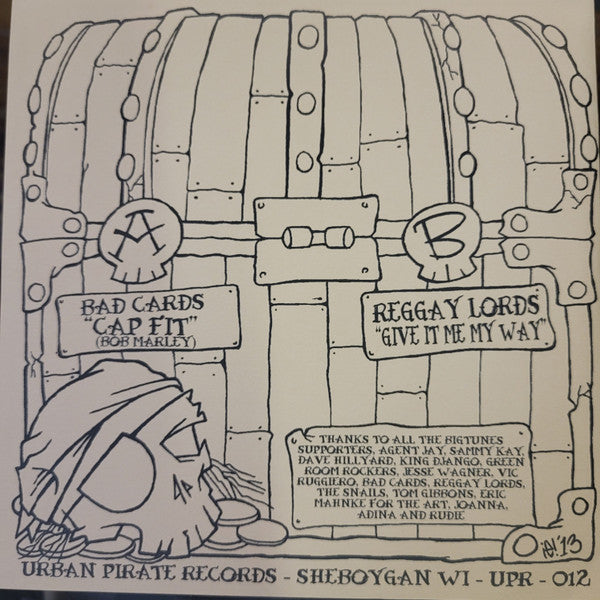 A
B
BAD CARDS
"CAP FIT"
(BOB MARLEY)
REGGAY LORDS
"GIVE IT ME MY WAY"
THANKS TO ALL THE BIGTUNES
SUPPORTERS, AGENT JAY, SAMMY KAY,
DAVE HILLYARD, KING DJANGO, GREEN
ROOM ROCKERS, JESSE WAGNER, VIC
RUGGIERO, BAD CARDS, REGGAY LORDS,
THE SNAILS, TOM GIBBONS, ERIC
MAHNKE FOR THE ART, JOANNA,
ADINA AND RUDIE
URBAN PIRATE RECORDS - SHEBOYGAN WI - UPR - 012